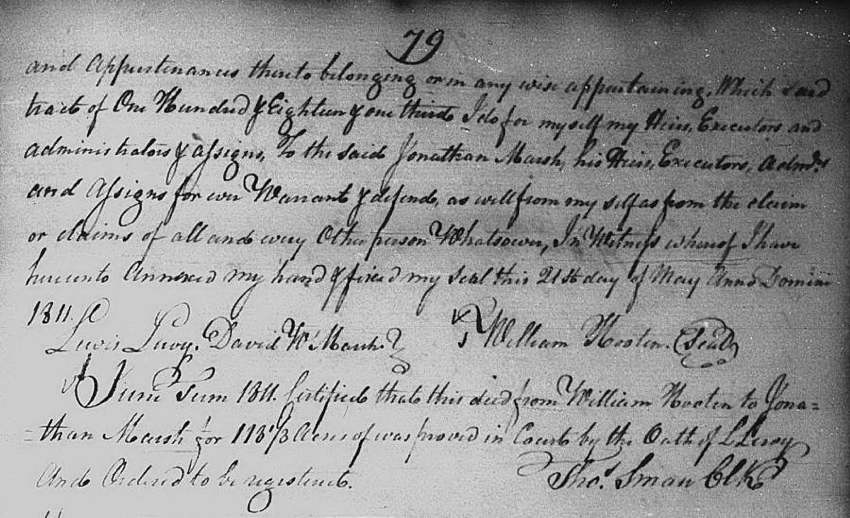 79
and Appurtenances thereto belonging or in any wise appurtaining, Which said
tract of One Hundred & Eighteen & one thirds I do for my self my Heirs, Executors and
administrators & assigns, To the said Jonathan Marsh, his Heirs, Executors, Admrs
and Assigns for ever Warrant & defend, as well from my self as from the claim
or claims of all and every Other person Whatsoever, In Witness whereof I have
hereunto Annexed my hand & fixed my Seal this 21st day of May Anno Domini
1811.
Lewis Levy. David W Marsh. William Hooten. Seal
June Term 1811. Certified that this deed from William Hooten to Jona=
=than Marsh for 118 1/3 Acres of was proved in Court by the Oath of L Levy
And Ordered to be registered.
Thos. Smaw Clk